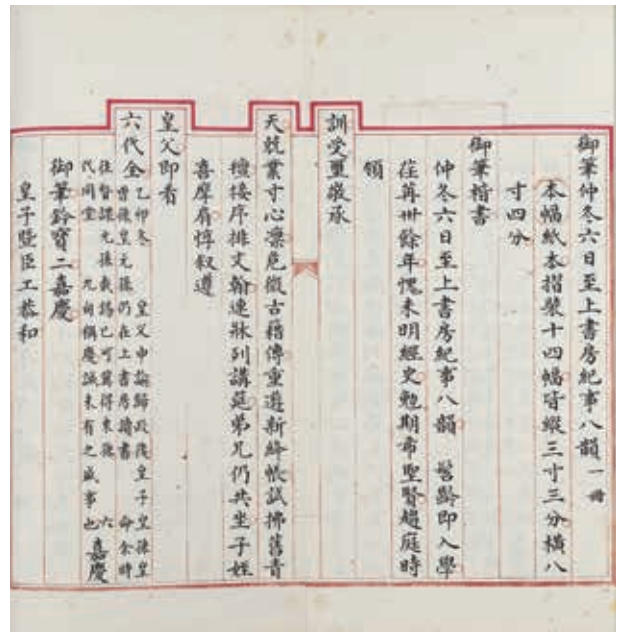 御筆仲冬六日至上書房紀事八韻一冊
本幅紙本摺裝十四幅皆縱三寸三分橫八
寸四分
御筆楷書
仲冬六日至上書房紀事八韻　髫齡即入學
荏苒卅餘年愧未明經史勉期希聖賢趨庭時
領
訓受璽敬承
天兢業寸心凜危微古籍傳重遊新絳帳試拂舊青
氈接序排文翰連牀列講筵弟兄仍共坐子姪
喜摩肩惇叙遵
皇父即看
六代全乙卯冬　皇父申諭歸政後皇子皇孫皇
曾孫皇元孫仍在上書房讀書　命余時
往督課元孫載錫已可冀得來孫　六
代同堂　九旬稱慶誠未有之盛事也嘉慶
御筆鈐寶二嘉慶
皇子暨臣工恭和